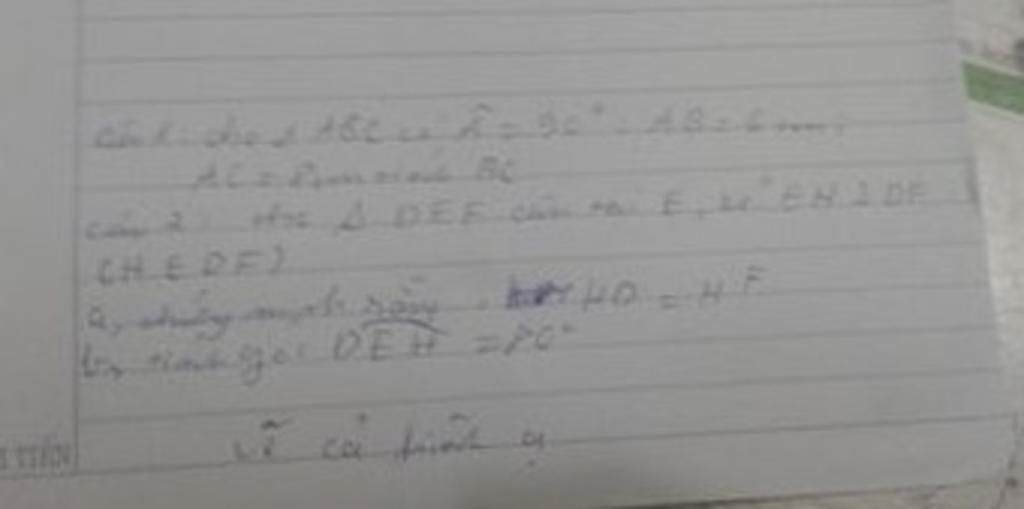 câu 1: cho Δ ABC có Â = 90° . AB = 6 cm,
AC = 8 cm tính BC
câu 2: cho Δ DEF cân tại E, kẻ EH ⊥ DF
(H ∈ DF)
a, chứng minh rằng HD = HF
b, tính góc DEH
vẽ cả hình ạ